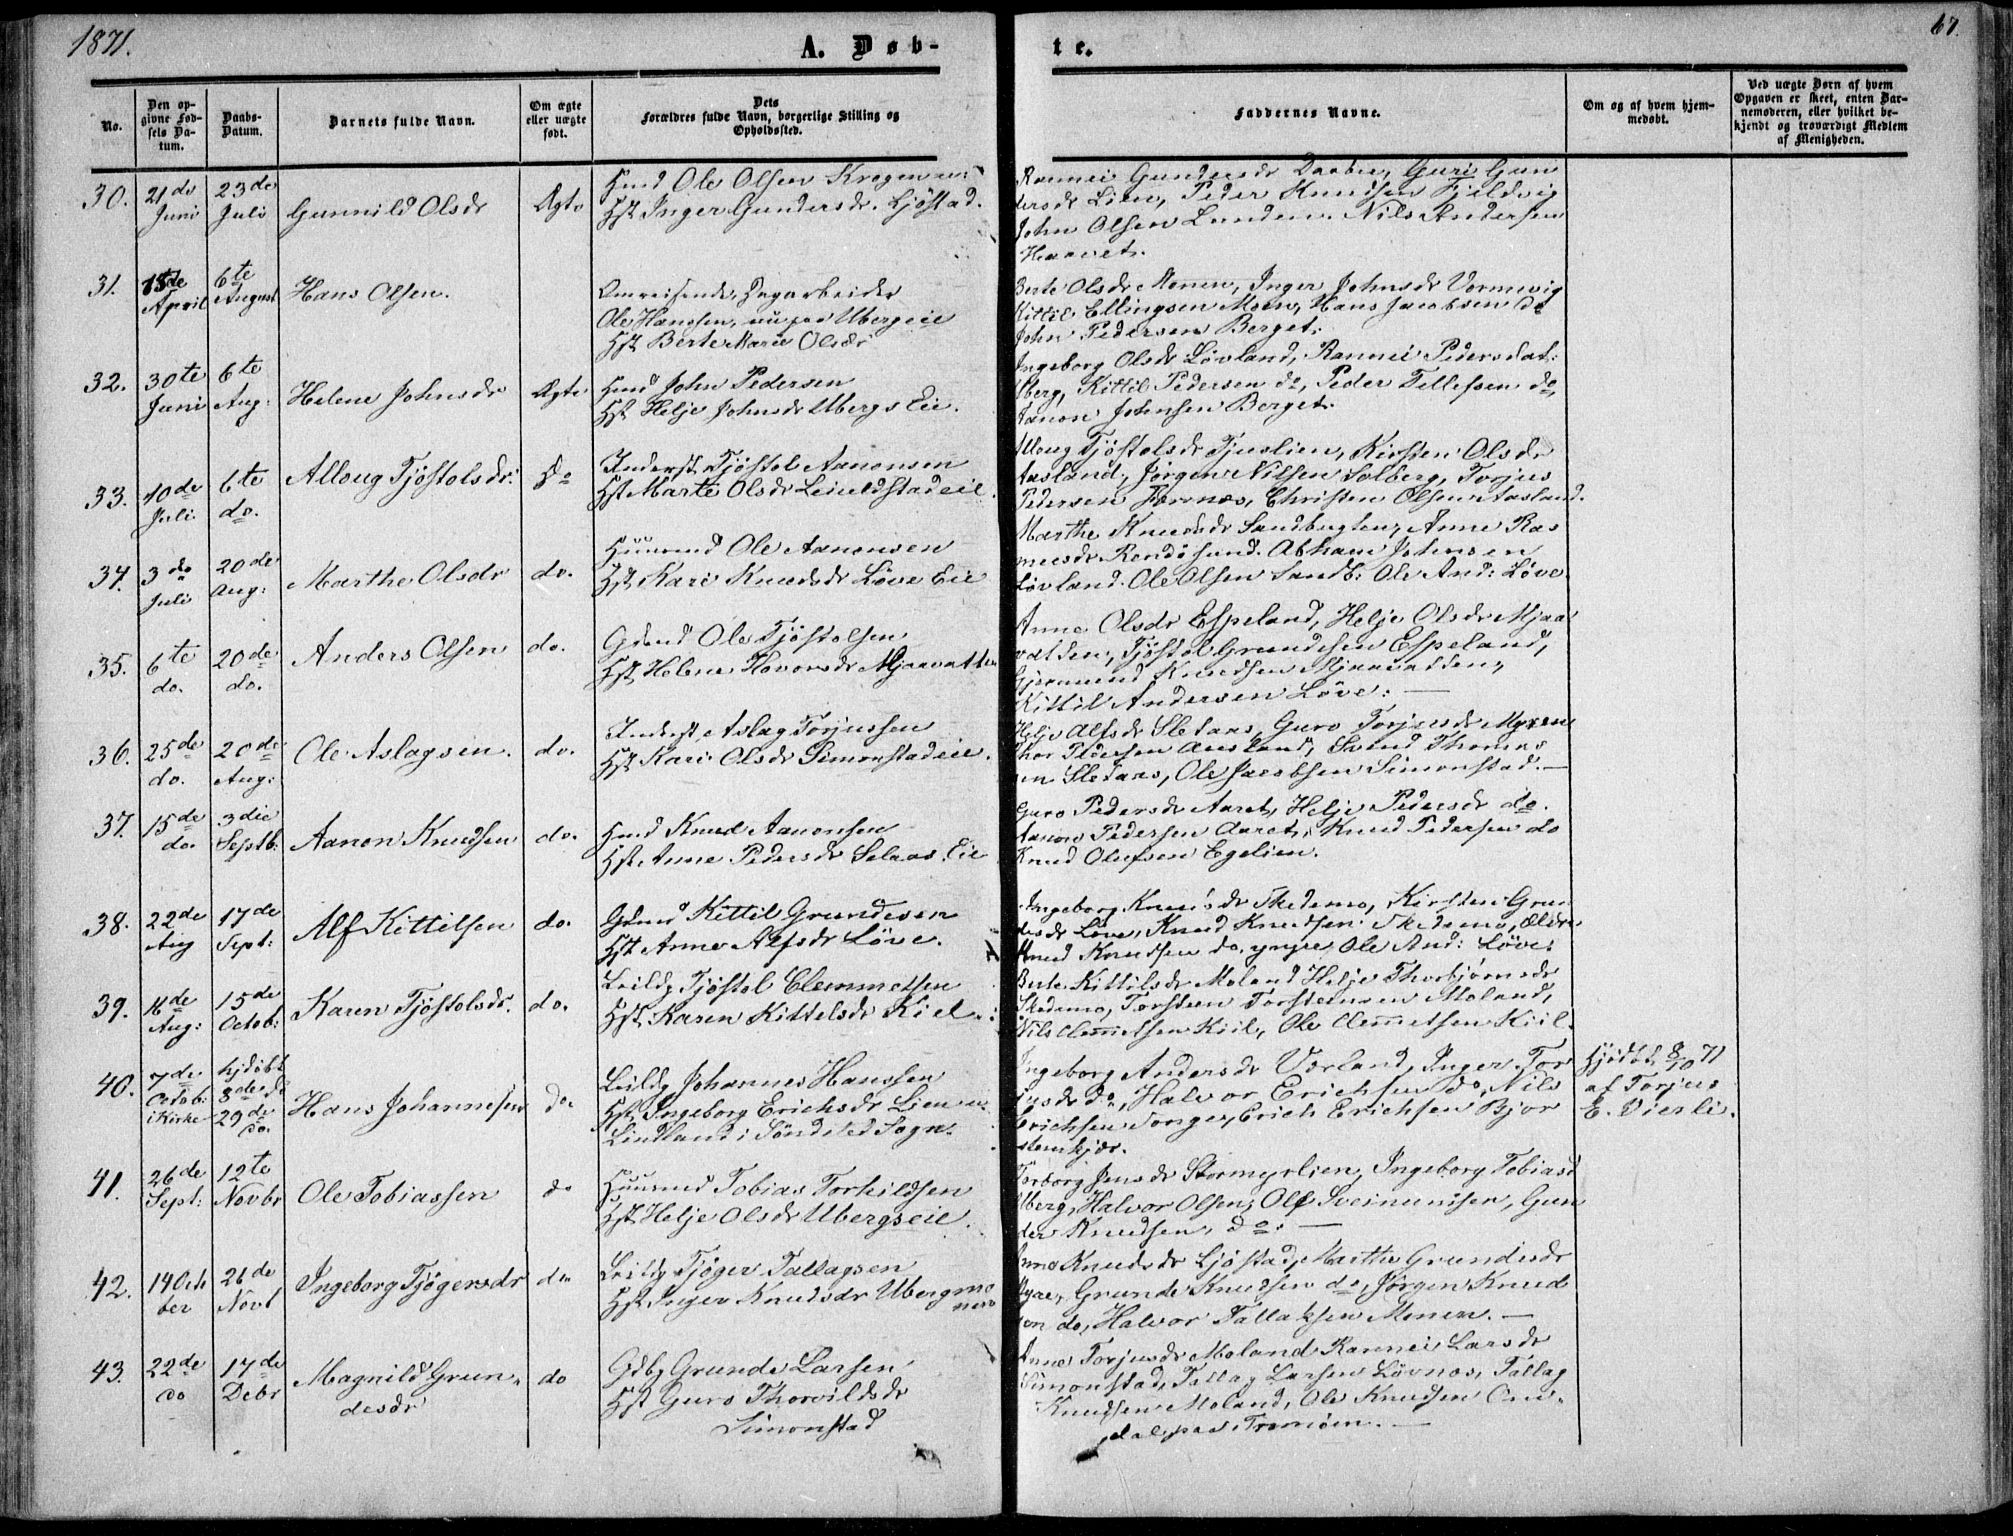 1871.
A. Døb-
te.
67.
No.
Den op-
givne Fød-
sels Da-
tum.
Daabs-
Datum.
Barnets fulde Navn.
Om ægte
eller uægte
født.
Dets
Forældres fulde Navn, borgerlige Stilling og
Opholdssted.
Faddernes Navne.
Om og af hvem hjem-
medøbt.
Ved uægte Børn af hvem
Opgaven er skeet, enten Bar-
nemoderen, eller hvilket be-
kjendt og troværdigt Medlem
af Menigheden.
30.
21de
Juni
23de
Juli
Gunnild Olsdr
Ægte
Huusmd Ole Olsen
Hst Inger Gundersdr. Ljøstad.
Rannei Gundersdr Guri Gun
dersdr Lien, Peder Knudsen Fjeldvig
John Olsen Lunden. Nils Andersen
31.
April
6te
August
Hans Olsen.
Omreisende Dagarbeider
Ole Hanssen, nu paa Ubergeie
Hst Berte Marie Olsdr
Berte Olsdr Monen, Inger Johnsdr
Kittil Ellingsen Moen, Hans Jacobsen do
John Pedersen Berget.
32.
30te
Juni
6te
Aug:
Helene Johnsdr
Ægte
Hmd John Pedersen
Hst Helje Johnsdr Ubergs Eie.
Ingeborg Olsdr Løvland, Rannei Pedersdat:
Uberg, Kittil Pedersen do, Peder Tellefsen do,
Aanon Johnsen Berget.
33.
10de
Juli
6te
do.
Alloug Tjøstolsdr.
do
Inderst Tjøstol Aanonsen
Hst Marte Olsdr
Alloug Tjøstolsdr Kirsten Olsdr
Aasland, Jørgen Nilsen Solberg, Torjus
Pedersen Christen Olsen Aasland.
34.
3de
Juli
20de
Aug:
Marthe Olsdr
do.
Huusmd Ole Aanonsen
Hst Kari Knudsdr Løve Eie
Marthe Knudsdr Sandbugten, Anne Ras
musdr Johnsen
Løvland. Ole Olsen Sandb: Ole And: Løve.
35.
6te
do.
20de
do.
Anders Olsen
do.
Gdmd Ole Tjøstolsen
Hst Helene Hovorsdr Mjaavatten
Anne Olsdr Espeland, Helje Olsdr Mjaa
vatten, Tjøstol Grundesen Espeland,
Gjermund Knudsen Mjaavatten,
Kittil Andersen Løve. —
36.
25de
do.
20de
Aug:
Ole Aslagsen.
do.
Inderst Aslag Torjussen
Hst Kari Olsdr Simonstadeie.
Helje Alfsdr Sletaas, Guro Torjusdr Myren
Thor Svend Thomas
sen Sletaas, Ole Jacobsen Simonstad. —
37.
15de
do.
3die
Septb:
Aanon Knudsen
do.
Hmd Knud Aanonsen
Hst Anne Pedersdr Selaas Eie
Guro Pedersdr Aaret, Helje Pedersdr do.
Aanon Pedersen Aaret, Knud Pedersen do
Knud Olufsen Egelien.
38.
22de
Aug
17de
Sept:
Alf Kittilsen
do.
Gdmd Kittil Grundesen
Hst Anne Alfsdr Løve.
Ingeborg Knudsdr Skedsmo, Kirsten Grun
desdr Løve, Knud Knudsen Skedsmo, ældre
Knud Knudsen do, yngre, Ole And: Løve.
39.
16de
Aug:
15de
Octob:
Karen Tjøstolsdr.
do.
Leildg Tjøstol Clemmetsen
Hst Karen Kittelsdr Kiel.
Berte Kittilsdr Moland Helje Thorbjørnsdr
Skedsmo, Torsteen Torsteensen Moland,
Nils Clemetsen Kiil, Ole Clemetsen Kiil.
40.
7de
Octob:
i Kirke
hjdøbt
8de do
29de
do.
Hans Johannesen
do.
Leildg Johannes Hanssen
Hst Ingeborg Erichsdr
Lindland i Søndeled Sogn.
Ingeborg Andersdr Værland, Inger Tor
jusdr do, Halvor Erichsen do, Nils
Erichsen Songe, Erich Erichsen Bjor
stemkjær.
Hjdbt 8/10 71
af Torjus
E. Vierli.
41.
26de
Sept:
12te
Novbr
Ole Tobiassen
do
Huusmd Tobias Torkildsen
Hst Helje Olsdr Ubergseie.
Torborg Jensdr Stormyrlien, Ingeborg Tobiasd
Uberg, Halvor Olsen, Ole Sveinunsen, Gun
der Knudsen, do. —
42.
14 Octo
ber
26de
Novb
Ingeborg Tjøgersdr
do
Leildg Tjøger Tallagsen
Hst Inger Knudsdr Ubergmo
nen
Anne Knudsdr Ljøstad, Marthe Grundesdr
Grunde Knudsen do, Jørgen Knud
sen do, Halvor Tallaksen Monen. —
43.
22de
do
17de
Debr
Magnild Grun-
desdr
do
Gdbg Grunde Larsen
Hst Guro Thorvildsdr
Simonstad
Anne Torjusdr Moland Rannei Larsdr
Simonstad, Tallag Larsen Løvnes, Tallag
Knudsen Moland, Ole Knudsen
dal, paa Tromøen. —